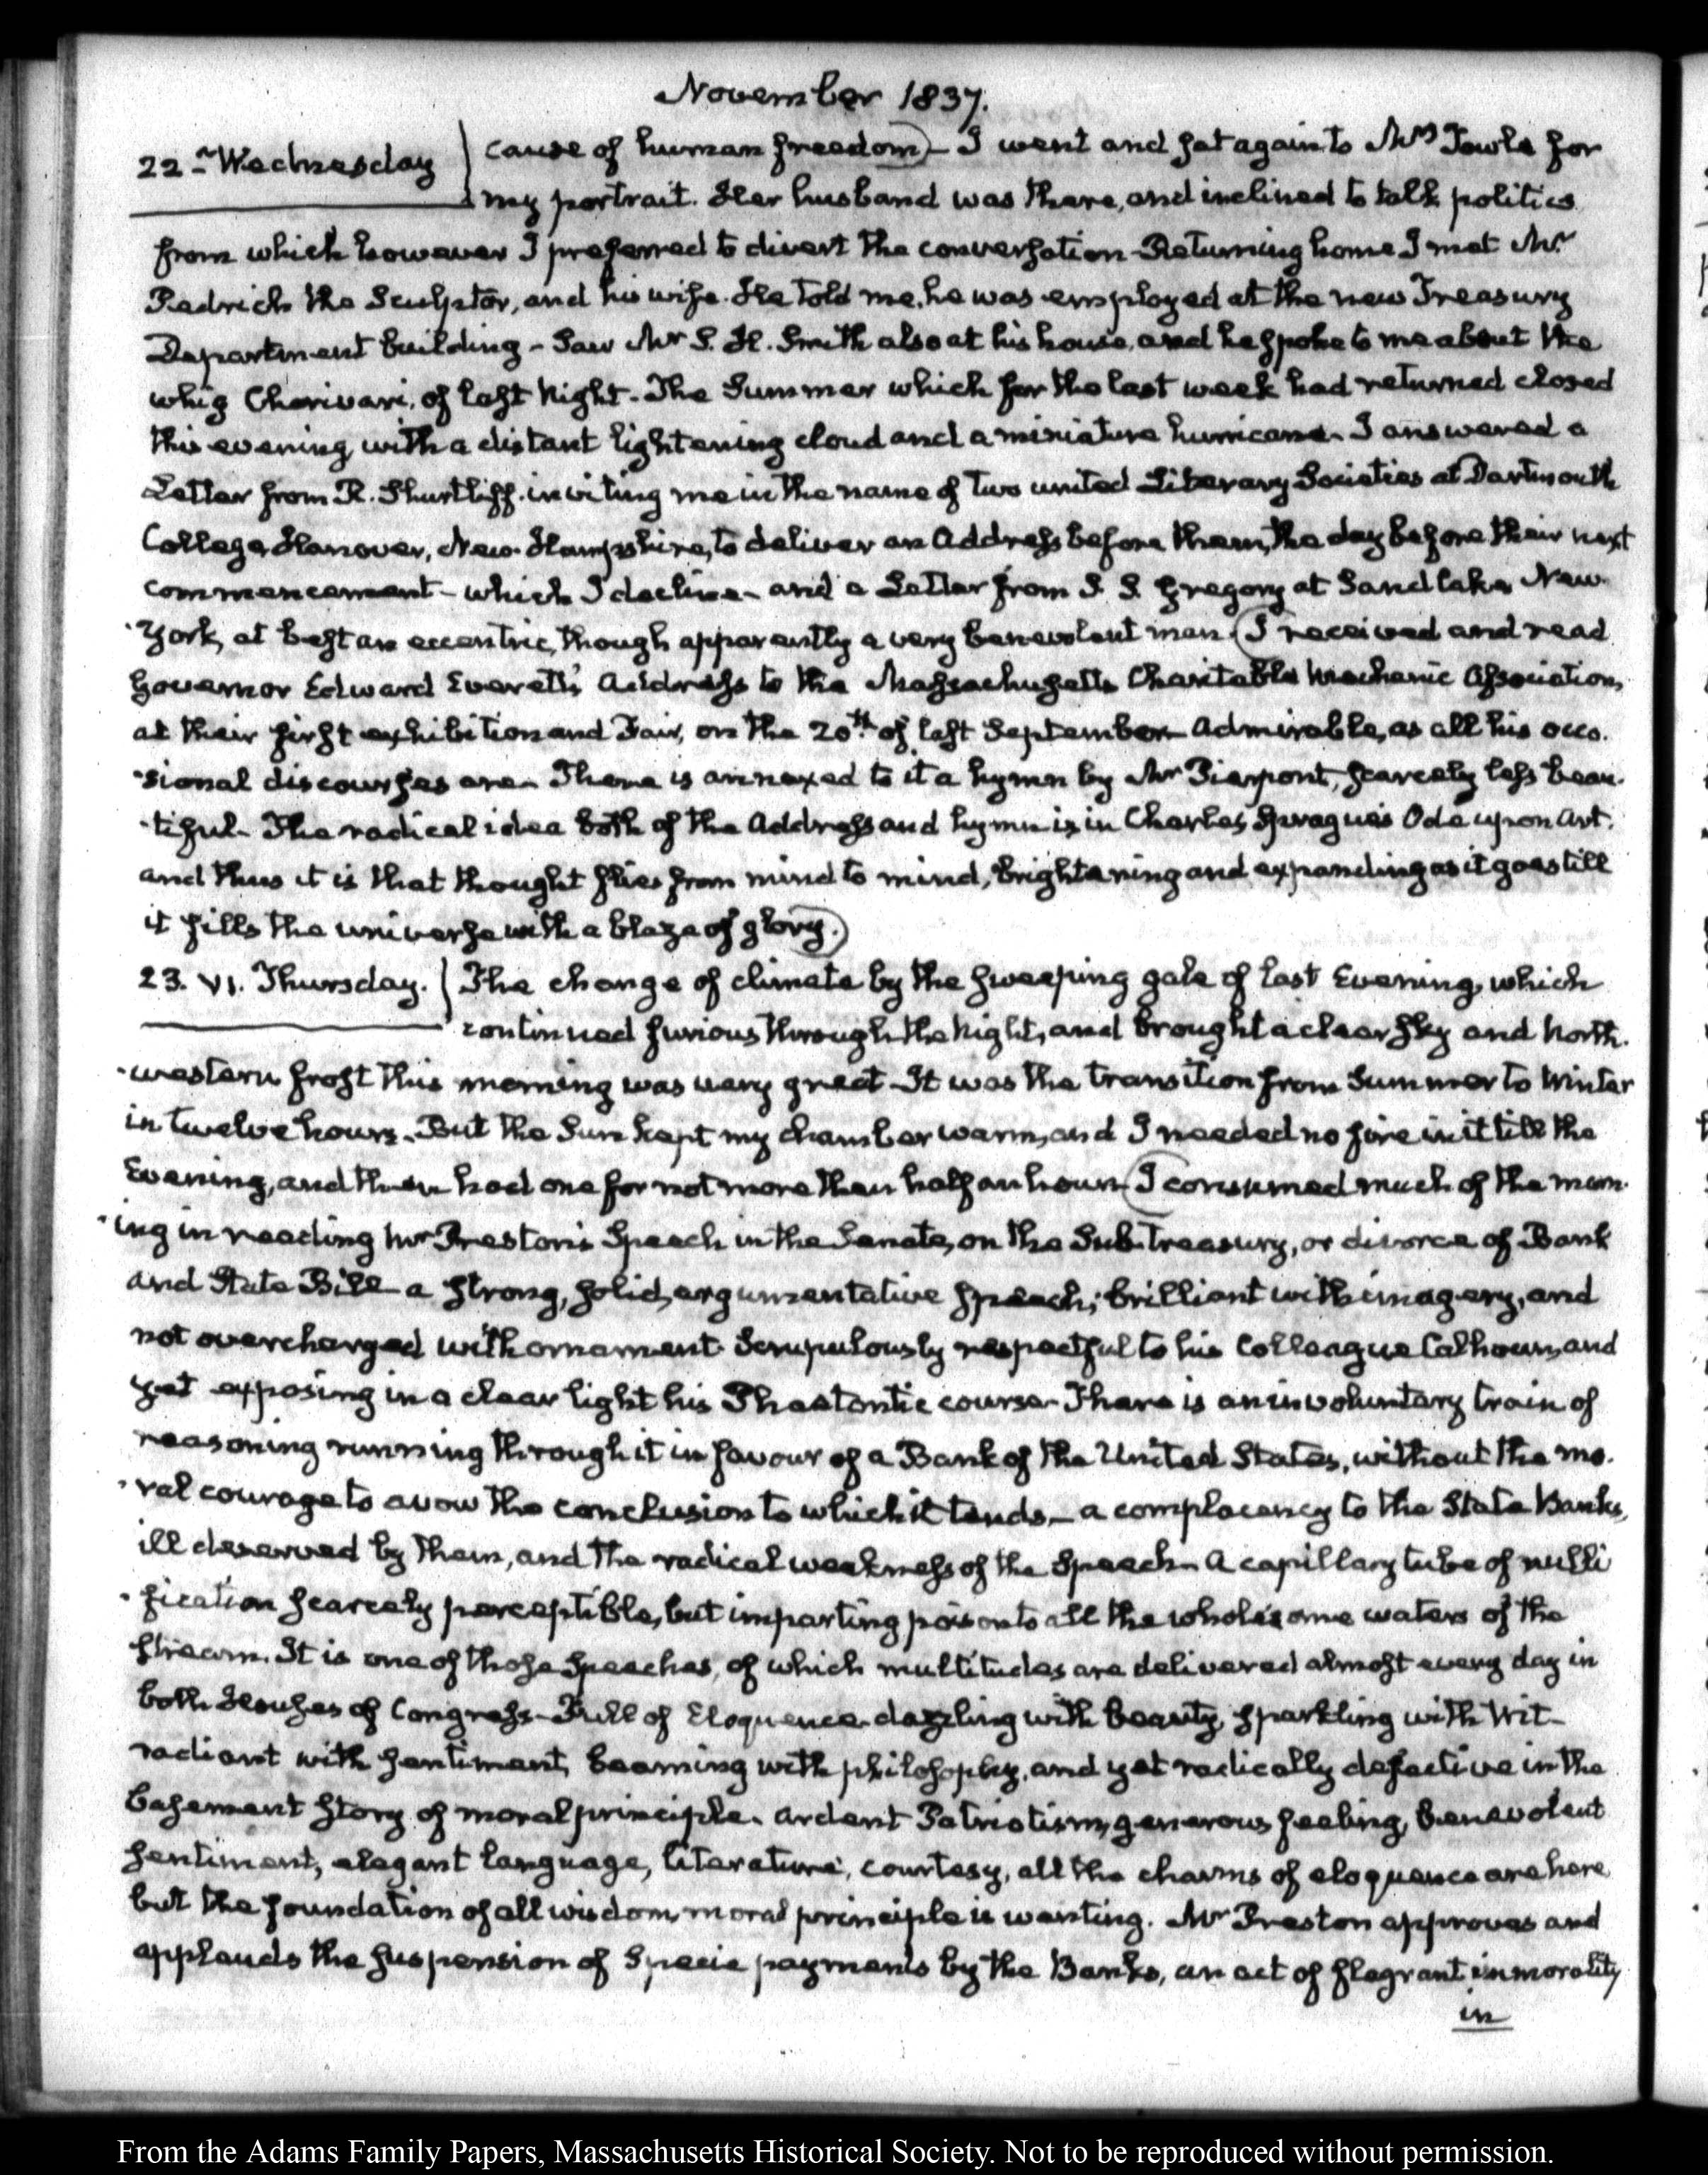 November 1837.
22 – Wednesday
cause of human freedom) – I went and sat again to Mrs Towle for
my portrait. Her husband was there, and inclined to talk politics
from which however I preferred to divert the conversation – Returning home I met Mr
Pedrich the Sculptor, and his wife. He told me, he was employed at the new Treasury
Department building – Saw Mr S. H. Smith also at his house, and he spoke to me about the
whig Charivari, of last Night – The Summer which for the last week had returned closed
this evening with a distant lightening cloud and a miniature hurricane – I answered a
Letter from R. Shurtliff inviting me in the name of two united Literary Societies at Dartmouth
College, Hanover, New-Hampshire, to deliver an Address before them, the day before their next
commencement – which I decline – and a Letter from S. S. Gregory at Sandlake New-
-York, at best an eccentric, though apparently a very benevolent man (I received and read
Governor Edward Everett's Address to the Massachusetts Charitable Mechanic Association,
at their first exhibition and Fair, on the 20th of last September – Admirable, as all his occa-
-sional discourses are – There is annexed to it a hymn by Mr Pierpont, scarcely less beau-
-tiful – The radical idea both of the Address and hymn is in Charles Sprague's Ode upon Art.
and thus it is that thought flies from mind to mind, brightening and expanding as it goes till
it fills the universe with a blaze of glory.)
23. VI. Thursday.
The change of climate by the sweeping gale of last Evening, which
continued furious through the Night, and brought a clear sky and North-
-western frost this morning was very great – It was the transition from Summer to Winter
in twelve hours. But the Sun kept my chamber warm, and I needed no fire in it till the
Evening, and then had one for not more than half an hour – (I consumed much of the morn-
-ing in reading Mr Preston's Speech in the Senate, on the Sub-Treasury, or divorce of Bank
and State Bill – a strong, solid, argumentative speech; brilliant with imagery, and
not overcharged with ornament. Scrupulously respectful to his Colleague Calhoun, and
yet exposing in a clear light his Phaetontic course – There is an involuntary train of
reasoning running through it in favour of a Bank of the United States, without the mo-
-ral courage to avow the conclusion to which it tends – a complacency to the State Banks,
ill deserved by them, and the radical weakness of the Speech – A capillary tube of nulli
-fication scarcely perceptible, but imparting poison to all the wholesome waters of the
stream. It is one of those Speeches, of which multitudes are delivered almost every day in
both Houses of Congress – Full of Eloquence – dazzling with beauty, sparkling with Wit –
radiant with sentiment, beaming with philosophy, and yet radically defective in the
basement story of moral principle. Ardent Patriotism, generous feeling, benevolent
sentiment, elegant language, literature, courtesy, all the charms of eloquence are here
but the foundation of all wisdom, moral principle is wanting. Mr Preston approves and
applauds the suspension of Specie payments by the Banks, an act of flagrant immorality
in
From the Adams Family Papers, Massachusetts Historical Society. Not to be reproduced without permission.